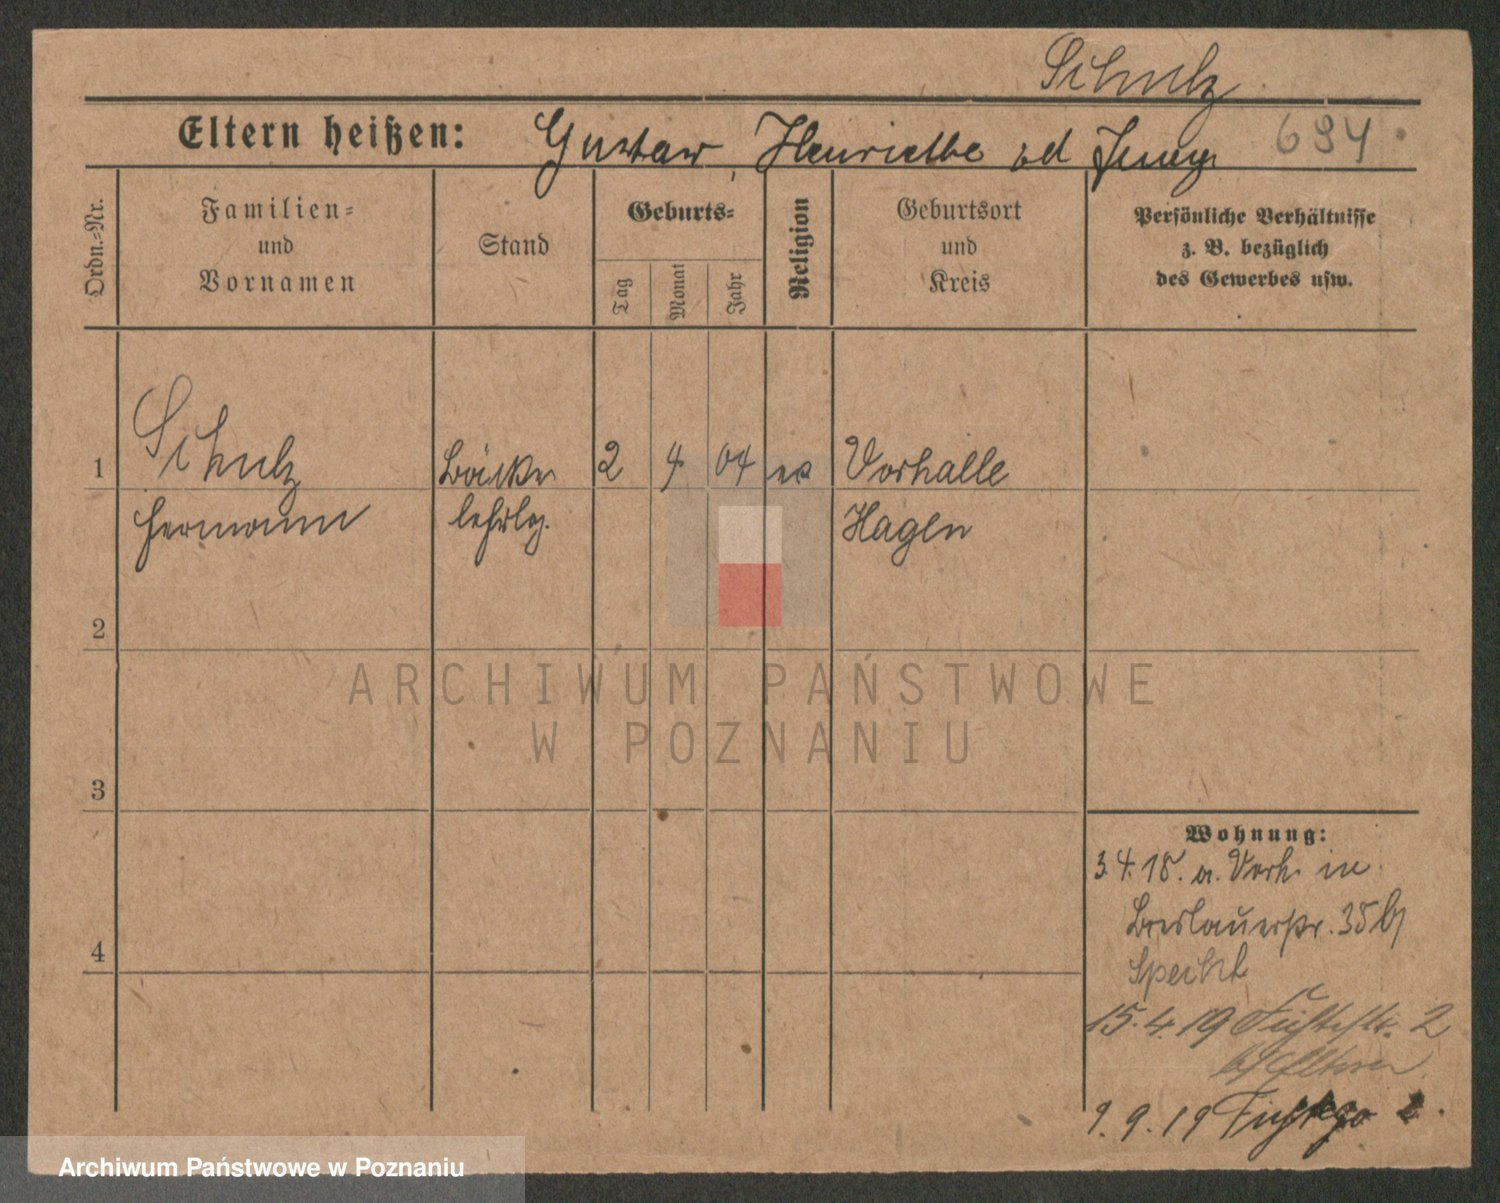 Schulz
Eltern heißen: Gustav Henriette
Ordn.-Nr.
Familien-
und
Vornamen
Stand
Geburts-
Tag
Monat
Jahr
Religion
Geburtsort
und
Kreis
Persönliche Verhältnisse
z. B. bezüglich
des Gewerbes usw.
1 Schulz Bäcker 2 4 04 ev Vorhalle
Hermann lehrlg. Hagen
2
3
4
Wohnung:
3.4.18. a. Vorh. in
Breslauerstr. 35 b/
Specht
15.4.19 2
b/ Eltern
9.9.19
ARCHIWUM PAŃSTWOWE
W POZNANIU
Archiwum Państwowe w Poznaniu